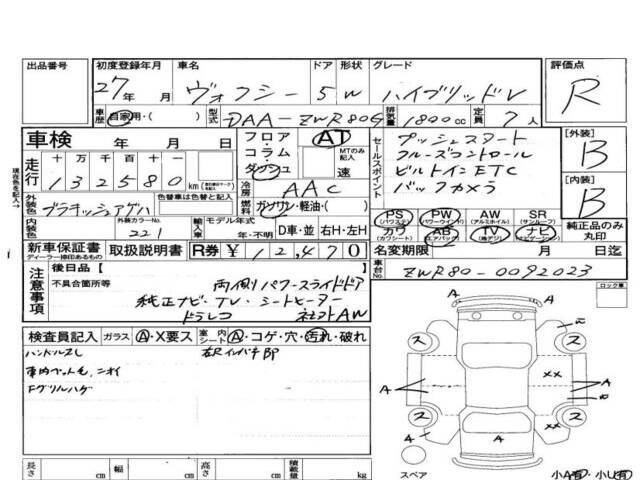 出品番号 初度登録年月 車名 ドア 形状 グレード 評価点
27年 月 ヴォクシー 5 W ハイブリッドV R
車歴 自家用・( ) 型式 DAA-ZWR80G 排気量 1800cc 定員 7人
車検 年 月 日
フロア・コラム・ダッシュ AT MTのみ記入 速
セールスポイント プッシュスタート
クルーズコントロール
ビルトインETC
バックカメラ
[外装] B
[内装] B
現在色を記入→
走行 十 万 千 百 十 一
132580 km
冷房 AAC
外装色 ブラキッシュアゲハ 色替車は色替と記入
燃料 ガソリン・軽油・( )
内装色 外装カラーNo. 221 輸入車 モデル年式 年・不明 D車・並 右H・左H
PS (パワステ) PW (パワーウインド) AW (アルミホイル) SR (サンルーフ)
カワ (カワシート) AB (エアバック) TV (地デジ) ナビ (ナビゲーション)
純正品のみ丸印
新車保証書 ディーラー捺印あるもの 取扱説明書 R券 ¥12,470
名変期限 月 日迄
車台No. ZWR80-0092023
注意事項 後日品[ ]
不具合箇所等 両側パワースライドドア
純正ナビ・TV・シートヒーター
ドラレコ 社外AW
ロック車
検査員記入 ガラス A・X要ス 室内シート A・コゲ・穴・汚れ・破れ
ハンドルスレ
車内ペット毛、ニオイ
Fグリルハゲ
A
A
ス ス
A
XX
A
ス ス
XX
A
A
A
スペア 小A有・小U有
長さ cm 幅 cm 高さ cm 積載量 kg